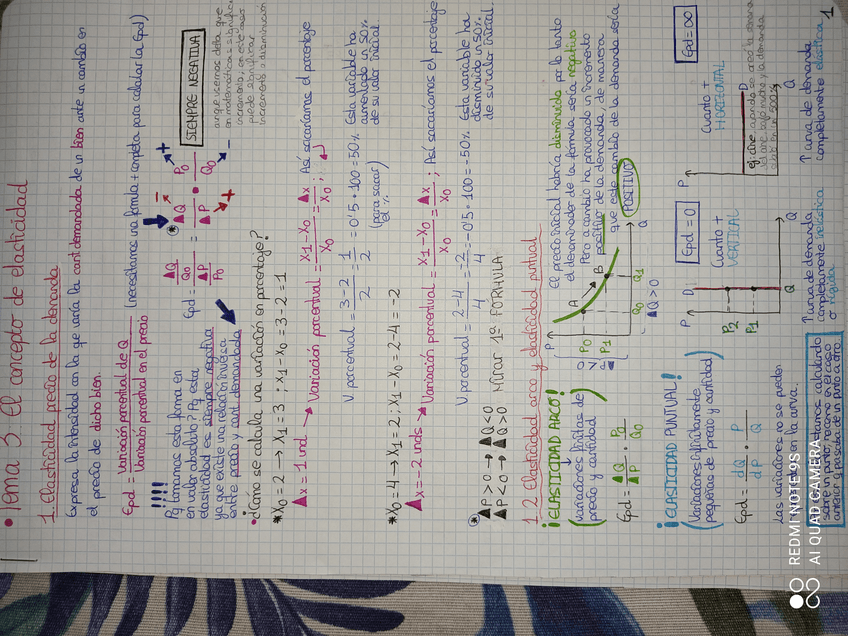 • Tema 3: El concepto de elasticidad
1. Elasticidad precio de la demanda
Expresa la intensidad con la que varía la cant demandada de un bien ante un cambio en
el precio de dicho bien.
Epd = Variación porcentual de Q / Variación porcentual en el precio
(necesitamos una fórmula + completa para calcular la Epd)
!!!!
Pq tomamos esta forma en
en valor absoluto? Pq esta
elasticidad es siempre negativa
ya que existe una relación inversa
entre precio y cant demandada
Epd = ▲Q/Q0 / ▲P/P0 = ▲Q/▲P • P0/Q0
SIEMPRE NEGATIVA
aunque usemos delta que
en matemáticas significa
incremento, en este caso
puede significar
incremento o disminución
• ¿Cómo se calcula una variación en porcentaje?
* X0 = 2 → X1 = 3 ; X1 - X0 = 3 - 2 = 1
▲x = 1 und → Variación porcentual = X1 - X0 / X0 = ▲x / X0 ; Así sacaríamos el porcentaje
V porcentual = 3 - 2 / 2 = 1 / 2 = 0'5 • 100 = 50% Esta variable ha
aumentado un 50%
de su valor inicial.
(para sacar
el %)
* X0 = 4 → X1 = 2 ; X1 - X0 = 2 - 4 = -2
▲x = -2 unds → Variación porcentual = X1 - X0 / X0 = ▲x / X0 ; Así sacaríamos el porcentaje
V porcentual = 2 - 4 / 4 = -2 / 4 = -0'5 • 100 = -50% Esta variable ha
disminuido un 50%
de su valor inicial.
* ▲P > 0 → ▲Q < 0
▲P < 0 → ▲Q > 0
Mirar 1ª FÓRMULA
1.2 Elasticidad arco y elasticidad puntual
¡ELASTICIDAD ARCO!
(variaciones finitas de
precio y cantidad)
Epd = ▲Q/▲P • P0/Q0
P
P0
P1
A
B
Q0 Q1
Q
▲Q > 0
El precio inicial habría disminuido por lo tanto
el denominador de la fórmula sería negativo
Pero a cambio ha provocado un incremento
positivo de la demanda, de manera
que este cambio de la demanda sería
POSITIVO
¡ELASTICIDAD PUNTUAL!
(Variaciones infinitamente
pequeñas de precio y cantidad)
Epd = dQ/dP • P/Q
Las variaciones no se pueden
en la curva.
calculando
Epd = 0
P
P2
P1
D
Q
Q
Cuanto +
VERTICAL
↑ curva de demanda
completamente inelástica
o rígida
Epd = ∞
Cuanto +
HORIZONTAL
P
D
Q
↑ curva de demanda
completamente elástica
1
REDMI NOTE 9S
AI QUAD CAMERA